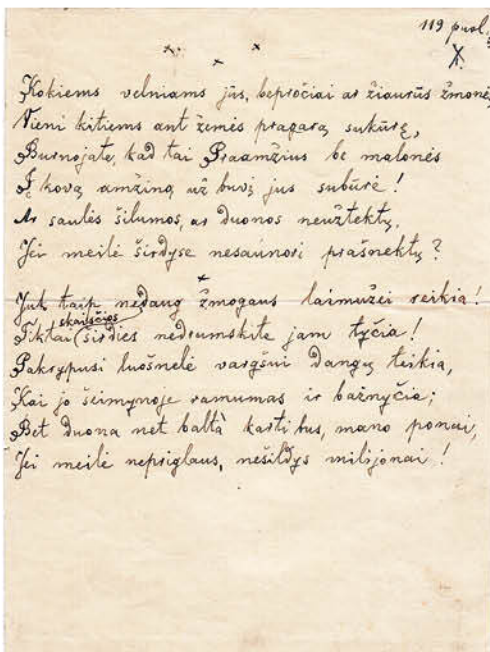 119 pusl.
X
x x x
Kokiems velniams jūs, bepročiai ar žiaurūs žmonės,
Vieni kitiems ant žemės pragarą sukūrę,
Burnojate, kad tai Praamžius be malonės
Į kovą amžiną už buvį jus subūrė!
Ar saulės šilumos, ar duonos neužtektų,
Jei meilė širdyse nesaunori prašnektų?
x
Juk taip nedaug žmogaus laimužei reikia!
skaisčios
Tiktai širdies nedrumskite jam tyčia!
Pakrypusi luošnelė vargšui dangų teikia,
Kai jo šeimynoje ramumas ir bažnyčia;
Bet duona net baltà karti bus, mano ponai,
Jei meilė nepriglaus, nešildys milijonai!